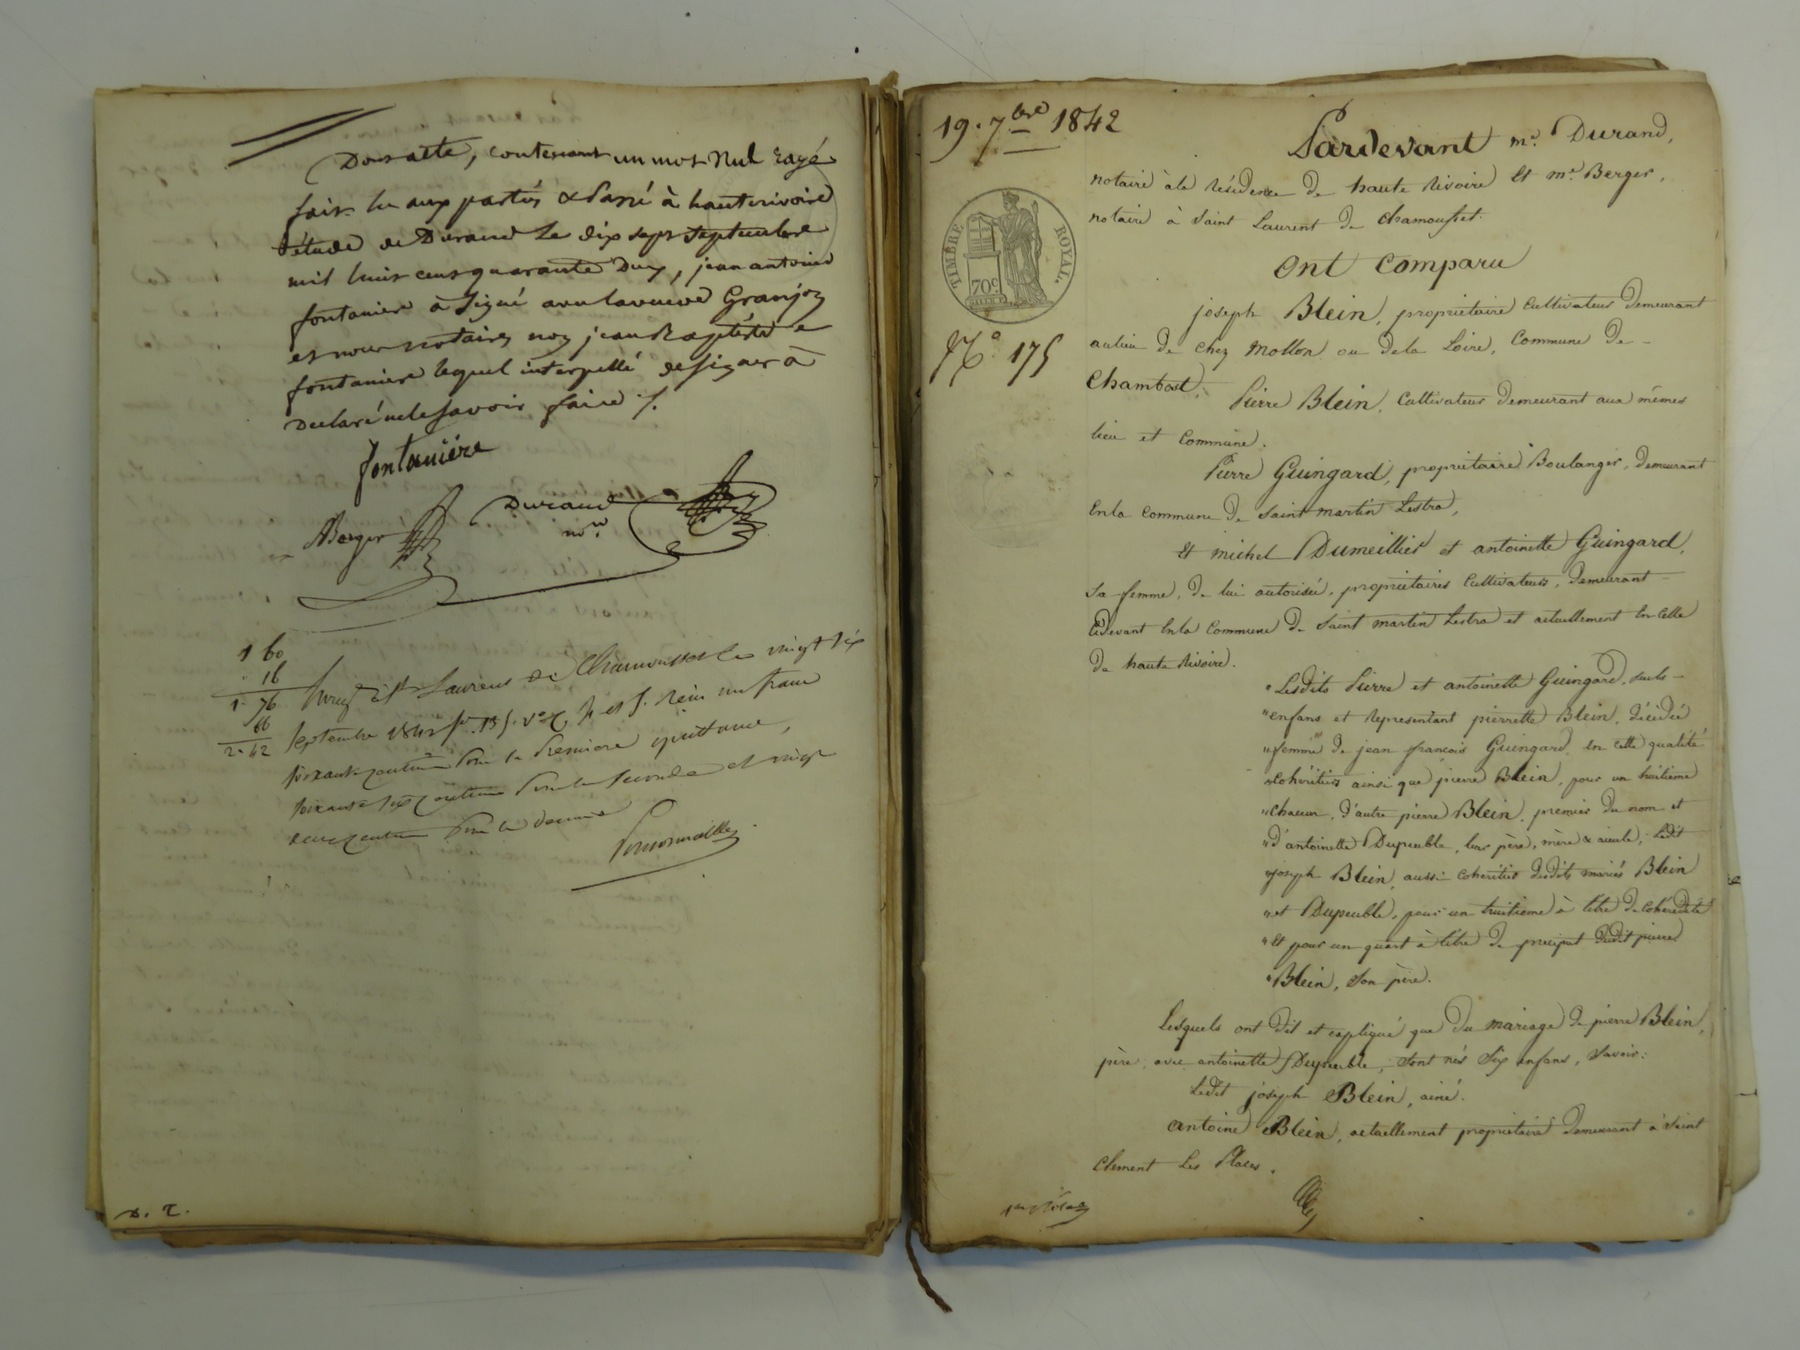 Dont acte, contenant un mot nul rayé
fait lu aux parties & passé à hauterivoire
étude de Durand le dix sept septembre
mil huit cent quarante deux, jean antoine
fontaniere à signé avec la veuve Granjon
et nous notaires non jean Baptiste
fontaniere lequel interpellé de signer à
declaré ne le savoir faire ./.
fontanière
Durand
nore
Berger
1 60
16
1. 76
66
2. 42
Enregt à St Laurent de Chamousset le vingt six
septembre 1842 fo. 135. vo c. 4 et 5. Reçu un franc
soixante centimes pour la premiere quittance,
soixante six centimes pour la seconde et vingt
centimes pour le decime
D. R.
19. 7bre 1842
TIMBRE ROYAL
70c
No 175
Pardevant me. Durand,
notaire à la résidence de haute Rivoire et me. Berger,
notaire à Saint Laurent de chamousset.
Ont Comparu
joseph Blein, propriétaire cultivateur demeurant
au lieu de chez Mollon ou de la Loire, Commune de
Chambost,
Pierre Blein, Cultivateur demeurant aux mêmes
lieu et Commune.
Pierre Guingard, propriétaire Boulanger, demeurant
En la Commune de Saint martin Lestra,
Et michel Dumeillier et antoinette Guingard,
sa femme, de lui autorisée, propriétaires Cultivateurs, demeurant
Cidevant En la Commune de Saint martin Lestra et actuellement En celle
de haute Rivoire.
"Lesdits Pierre et antoinette Guingard, seuls
"enfans et Représentant pierrette Blein, décédée
"femme de jean françois Guingard, en cette qualité
"Cohéritiers ainsi que pierre Blein, pour un huitieme
"chacun, d'autre pierre Blein, premier du nom et
"d'antoinette Dupeuble, leur père, mère & aieule; Ledit
"joseph Blein, aussi Cohéritier desdits mariés Blein
"et Dupeuble, pour un huitieme à titre de Cohéredité
"Et pour un quart à titre de preciput dudit pierre
"Blein, son père.
Lesquels ont dit et expliqué que du mariage de pierre Blein,
père, avec antoinette Dupeuble, Sont nés Six enfans, Savoir:
Ledit joseph Blein, ainé.
Antoine Blein, actuellement propriétaire demeurant à Saint
Clement Les Places.